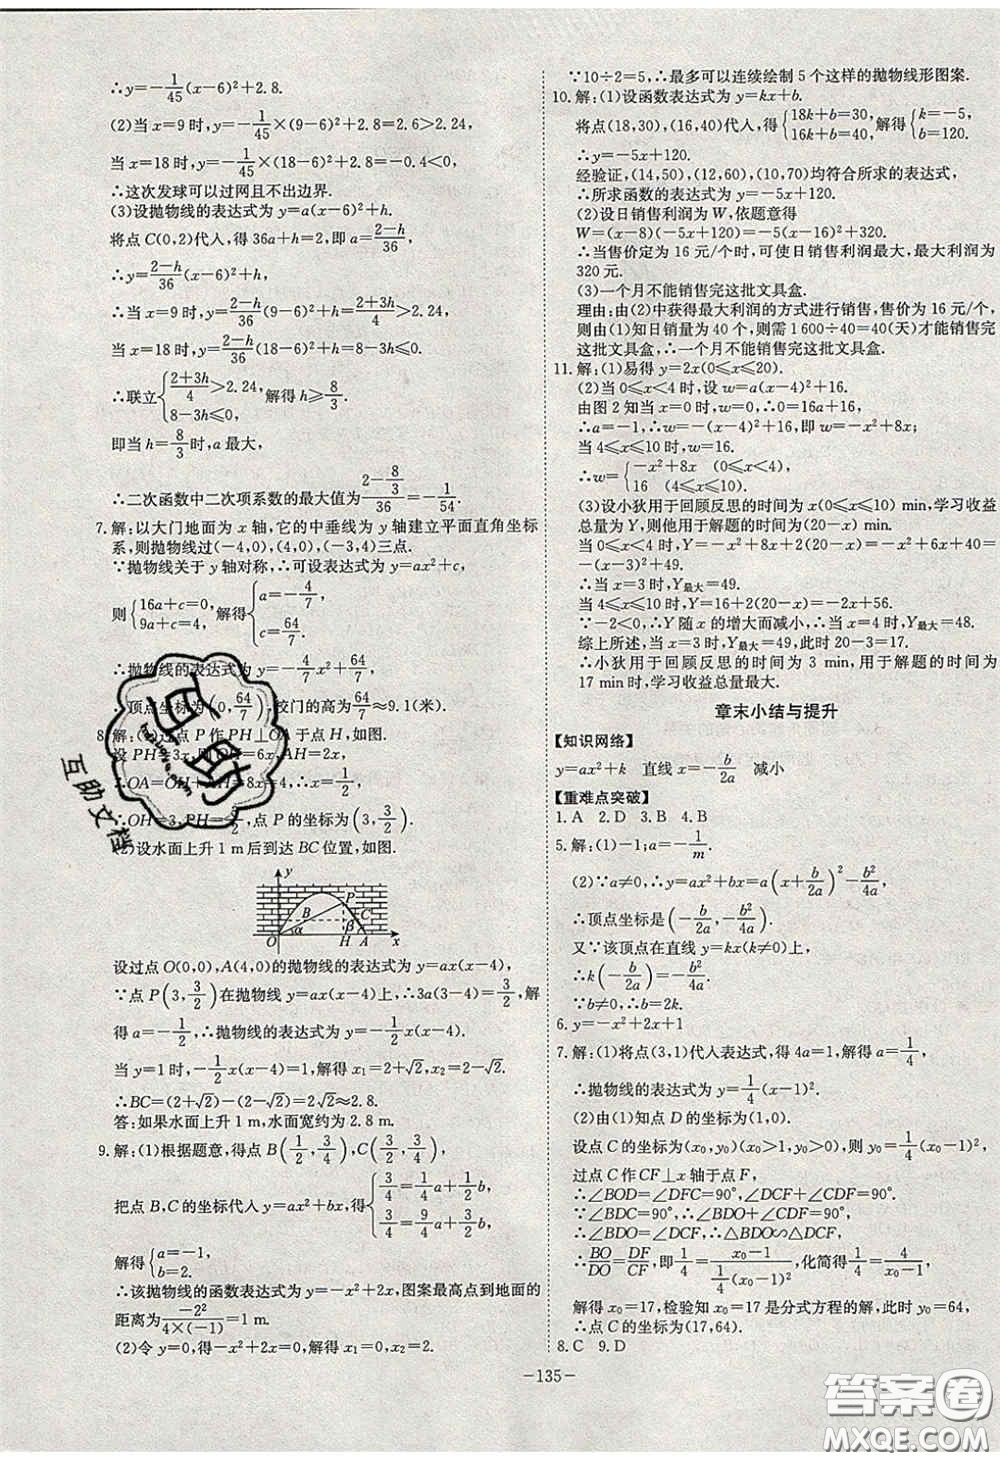 ∴y=-1/45(x-6)²+2.8.
(2)当 x=9 时,y=-1/45×(9-6)²+2.8=2.6>2.24,
当 x=18 时,y=-1/45×(18-6)²+2.8=-0.4<0,
∴这次发球可以过网且不出边界.
(3)设抛物线的表达式为 y=a(x-6)²+h.
将点 C(0,2)代入,得 36a+h=2,即 a=(2-h)/36,
∴y=(2-h)/36(x-6)²+h.
当 x=9 时,y=(2-h)/36(9-6)²+h=(2+3h)/4>2.24,
当 x=18 时,y=(2-h)/36(18-6)²+h=8-3h≤0,
∴联立{(2+3h)/4>2.24, 8-3h≤0, 解得 h≥8/3.
即当 h=8/3时,a 最大,
∴二次函数中二次项系数的最大值为(2-8/3)/36=-1/54.
7.解:以大门地面为 x 轴,它的中垂线为 y 轴建立平面直角坐标
系,则抛物线过(-4,0),(4,0),(-3,4)三点.
∵抛物线关于 y轴对称,∴可设表达式为 y=ax²+c,
则{16a+c=0, 9a+c=4, 解得{a=-4/7, c=64/7.
∴抛物线的表达式为 y=-4/7x²+64/7.
∴顶点坐标为(0,64/7),校门的高为64/7≈9.1(米).
8.解:(1)过点 P 作 PH⊥OA 于点 H,如图.
设 PH=3x,则 OH=6x,AH=2x,
∴OA=OH+AH=8x=4,∴x=1/2,
∴OH=3,PH=3/2,点 P 的坐标为(3,3/2).
(2)设水面上升 1 m 后到达 BC 位置,如图.
y
P
B
C
α
β
O
H
A
x
设过点 O(0,0),A(4,0)的抛物线的表达式为 y=ax(x-4),
∵点 P(3,3/2)在抛物线 y=ax(x-4)上,∴3a(3-4)=3/2,解
得 a=-1/2,∴抛物线的表达式为 y=-1/2x(x-4).
当 y=1 时,-1/2x(x-4)=1,解得 x₁=2+√2,x₂=2-√2.
∴BC=(2+√2)-(2-√2)=2√2≈2.8.
答:如果水面上升 1 m,水面宽约为 2.8 m.
9.解:(1)根据题意,得点 B(1/2,3/4),C(3/2,3/4),
把点 B,C 的坐标代入 y=ax²+bx,得{3/4=1/4a+1/2b, 3/4=9/4a+3/2b,
解得{a=-1, b=2.
∴该抛物线的函数表达式为 y=-x²+2x,图案最高点到地面的
距离为-2²/(4×(-1))=1 m.
(2)令 y=0,即-x²+2x=0,解得 x₁=0,x₂=2.
∵10÷2=5,∴最多可以连续绘制 5 个这样的抛物线形图案.
10.解:(1)设函数表达式为 y=kx+b.
将点(18,30),(16,40)代入,得{18k+b=30, 16k+b=40, 解得{k=-5, b=120.
∴y=-5x+120.
经验证,(14,50),(12,60),(10,70)均符合所求的表达式,
∴所求函数的表达式为 y=-5x+120.
(2)设日销售利润为 W,依题意得
W=(x-8)(-5x+120)=-5(x-16)²+320.
∴当售价定为 16 元/个时,可使日销售利润最大,最大利润为
320 元.
(3)一个月不能销售完这批文具盒.
理由:由(2)中获得最大利润的方式进行销售,售价为 16 元/个,
则由(1)知日销量为 40 个,则需 1 600÷40=40(天)才能销售完
这批文具盒,∴一个月不能销售完这批文具盒.
11.解:(1)易得 y=2x(0≤x≤20).
(2)当 0≤x<4 时,设 w=a(x-4)²+16.
由图 2 知当 x=0 时,w=0,∴0=16a+16,
∴a=-1,∴w=-(x-4)²+16,即w=-x²+8x;
当 4≤x≤10 时,w=16.
∴w={-x²+8x (0≤x<4), 16 (4≤x≤10).
(3)设小狄用于回顾反思的时间为 x(0≤x≤10) min,学习收
益总量为 Y,则他用于解题的时间为(20-x) min.
当 0≤x<4 时,Y=-x²+8x+2(20-x)=-x²+6x+40=
-(x-3)²+49.
∴当 x=3 时,Y最大=49.
当 4≤x≤10 时,Y=16+2(20-x)=-2x+56.
∵-2<0,∴Y 随 x 的增大而减小,∴当 x=4 时,Y最大=48.
综上所述,当 x=3 时,Y最大=49,此时 20-3=17.
∴小狄用于回顾反思的时间为 3 min,用于解题的时间为
17 min时,学习收益总量最大.
章末小结与提升
【知识网络】
y=ax²+k 直线 x=-b/2a 减小
【重难点突破】
1.A 2.D 3.B 4.B
5.解:(1)-1;a=-1/m.
(2)∵a≠0,∴y=ax²+bx=a(x+b/2a)²-b²/4a,
∴顶点坐标是(-b/2a,-b²/4a).
又∵该顶点在直线 y=kx(k≠0)上,
∴k(-b/2a)=-b²/4a.
∵b≠0,∴b=2k.
6.y=-x²+2x+1
7.解:(1)将点(3,1)代入表达式,得 4a=1,解得 a=1/4,
∴抛物线的表达式为 y=1/4(x-1)².
(2)由(1)知点 D 的坐标为(1,0).
设点 C 的坐标为(x₀,y₀)(x₀>1,y₀>0),则 y₀=1/4(x₀-1)²,
过点 C 作 CF⊥x 轴于点 F,
∴∠BOD=∠DFC=90°,∠DCF+∠CDF=90°.
∵∠BDC=90°,∴∠BDO+∠CDF=90°,
∴∠BDO=∠DCF,∴△BDO∽△DCF,
∴BO/DO=DF/CF,即1/1=(x₀-1)/(1/4(x₀-1)²),化简得1/4=1/(x₀-1),
解得 x₀=17,检验知 x₀=17 是分式方程的解,此时 y₀=64,
∴点 C 的坐标为(17,64).
8.C 9.D
-135-
互助
互助文档
答案圈
MXQE.COM